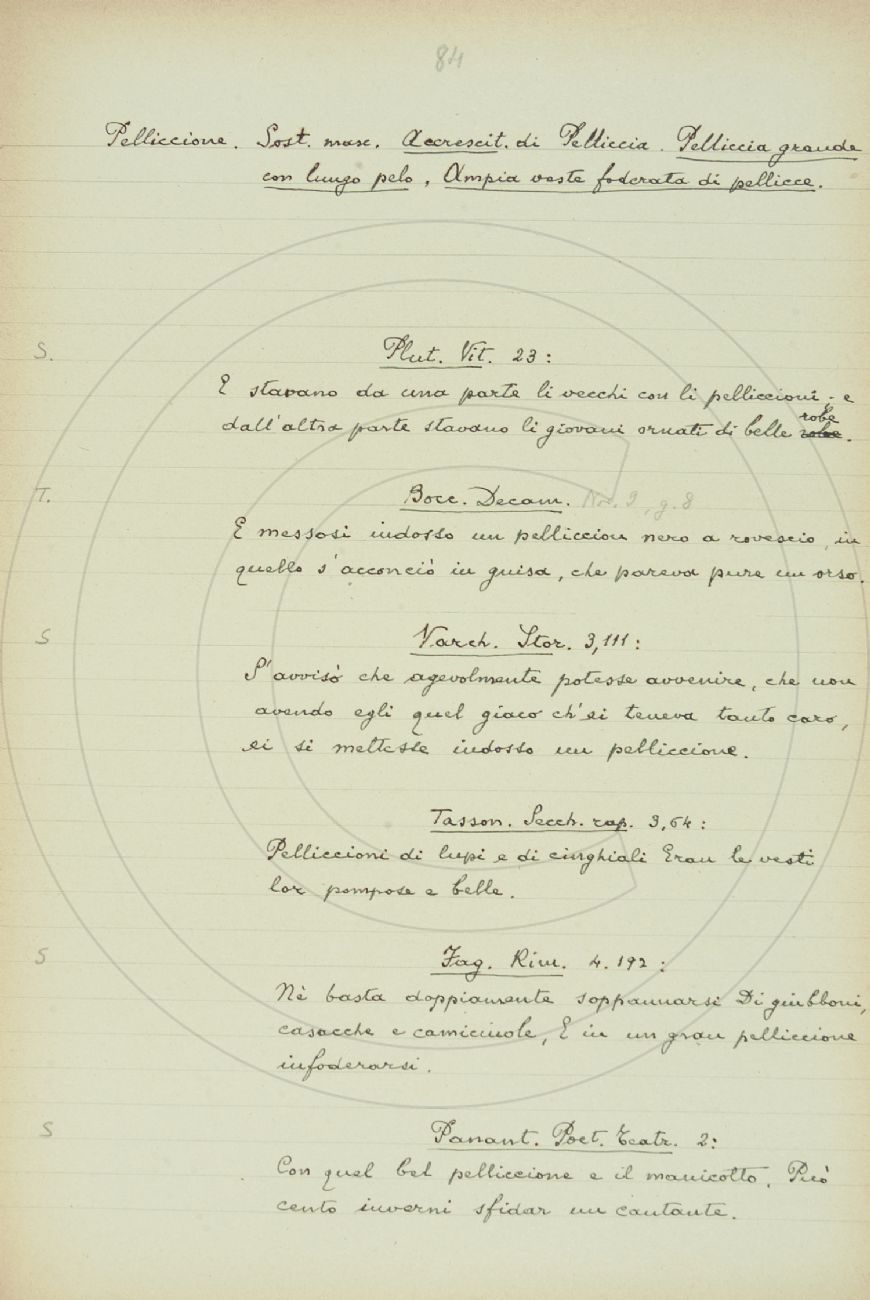 84
Pelliccione. Sost. masc. Accrescit. di Pelliccia. Pelliccia grande
con lungo pelo, Ampia veste foderata di pellicce.
S. Plut. Vit. 23:
E stavano da una parte li vecchi con li pelliccioni; e
dall'altra parte stavano li giovani ornati di belle robe.
T. Bocc. Decam. Nov. 9, g. 8
E messosi indosso un belliccion nero a rovescio, in
quello s'acconciò in guisa, che pareva pure un orso.
S Varch. Stor. 3,111:
S'avvisò che agevolmente potesse avvenire, che non
avendo egli quel giaco ch'ei teneva tanto caro,
ei si mettesse indosso un pelliccione.
Tasson. Secch. rap. 3,64:
Pelliccioni di lupi e di cinghiali Eran le vesti
lor pompose e belle.
S Fag. Rim. 4.192:
Nè basta doppiamente soppannarsi Di giubboni,
casacche e camiciuole, E in un gran pelliccione
infoderarsi.
S Panant. Poet. Teatr. 2:
Con quel bel pelliccione e il manicotto, Può
cento inverni sfidar un cantante.